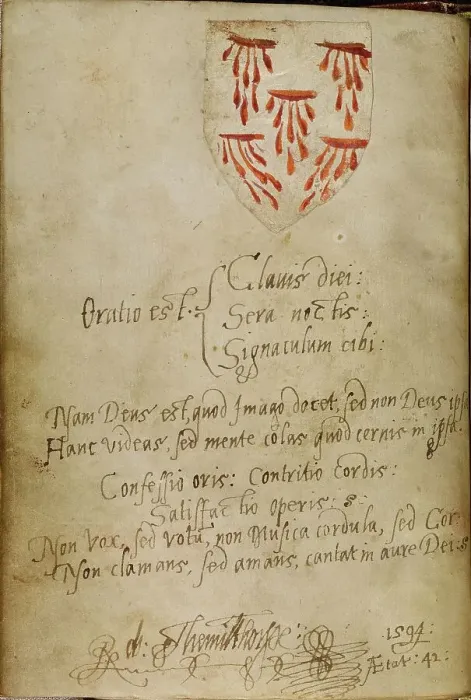 Oratio est. Clavis diei:
Sera noctis:
Signaculum cibi:
Nam Deus est, quod Imago docet, sed non Deus ipsa
Hanc videas, sed mente colas quod cernis in ipsa:
Confessio oris: Contritio cordis:
Satisfactio operis:
Non Vox, sed votū, non Musica cordula, sed Cor
Non clamans, sed amans, cantat in aure Dei:
1594:
Ætat: 42: